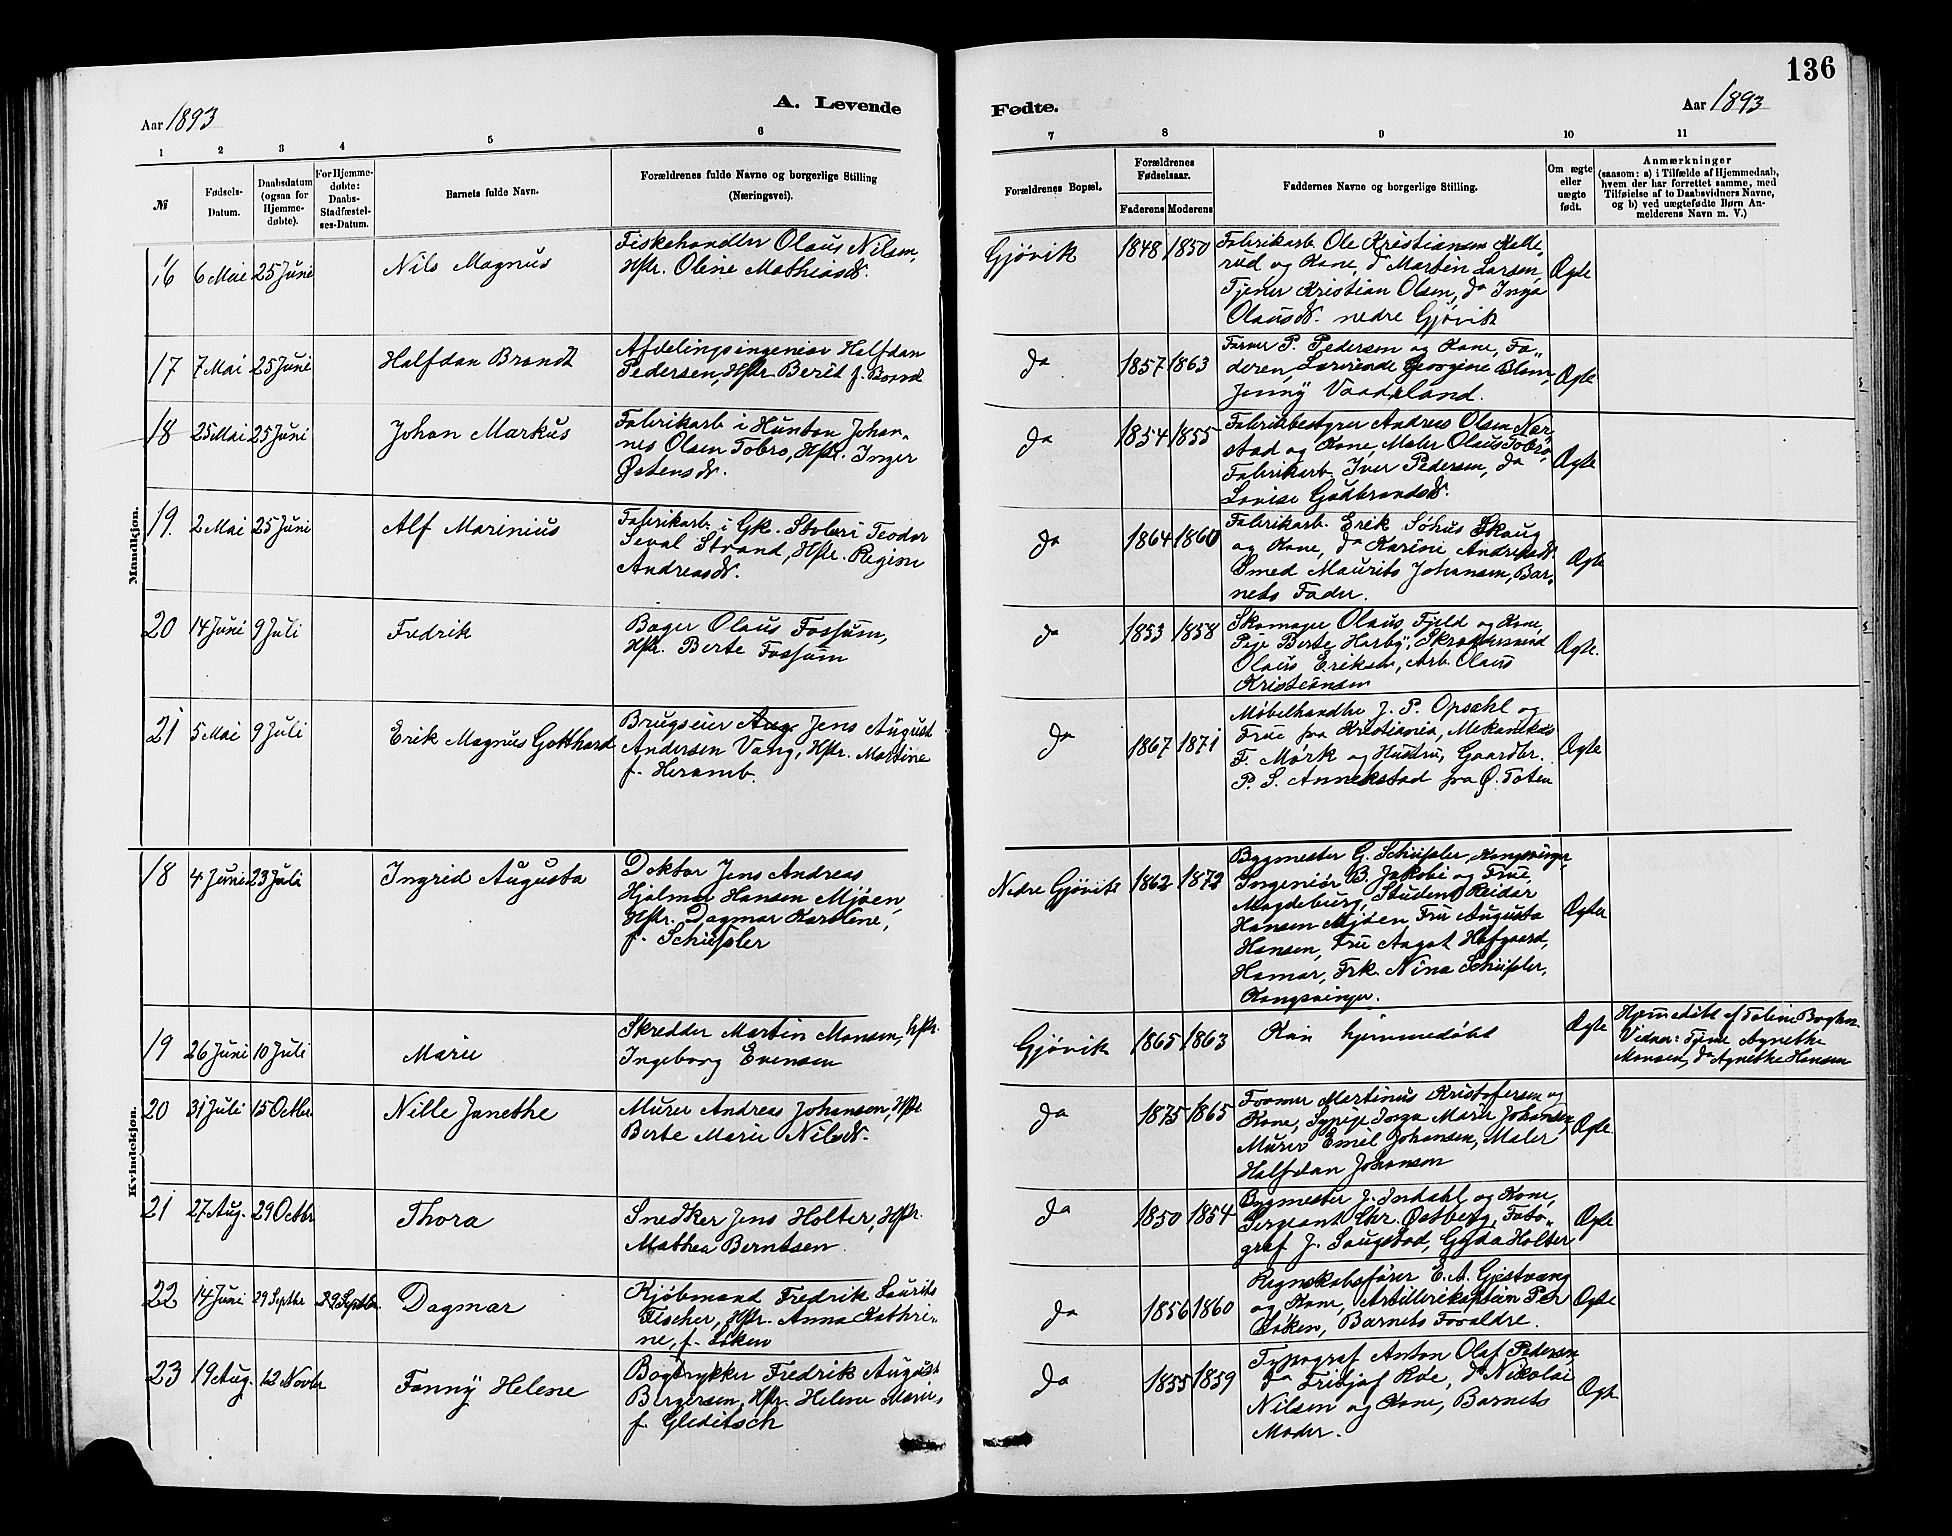 136
Aar 1893
A. Levende
Fødte.
Aar 1893
1 2 3 4 5 6 7 8 9 10 11
№
Fødsels-Datum.
Daabsdatum (ogsaa for Hjemmedøbte).
For Hjemmedøbte: Daabs-Stadfæstelses-Datum.
Barnets fulde Navn.
Forældrenes fulde Navne og borgerlige Stilling (Næringsvei).
Forældrenes Bopæl.
Forældrenes Fødselsaar.
Faderens Moderens
Faddernes Navne og borgerlige Stilling.
Om ægte eller uægte født.
Anmærkninger
(saasom: a) i Tilfælde af Hjemmedaab,
hvem der har forrettet samme, med
Tilføielse af to Daabsvidners Navne,
og b) ved uægtefødte Børn An-
melderens Navn m. V.)
Mandkjøn.
16 6 Mai 25 Juni Nils Magnus
Fiskehandler Olaus Nilsen,
Hstr. Oline Mathiasd.
Gjøvik 1848 1850
Fabrikarb. Ole Kristiansen Kalle-
rud og Kone, do Martin Larsen,
Tjener Kristian Olsen, do Inga
Olausd. nedre Gjøvik
Ægte
17 7 Mai 25 Juni Halfdan Brandt
Afdelingsingeniør Halfdan
Pedersen, Hstr. Berit f. Brandt
da 1857 1863
Farver P. Pedersen og Kone, Fa-
deren, Lærerinde Georgine Blom,
Jenny Vaaderland.
Ægte
18 25 Mai 25 Juni Johan Markus
Fabrikarb. i Hunton Johan-
nes Olsen Tobro, Hstr. Inger
Østensd.
da 1854 1855
Fabrikbestyrer Andreas Olsen Nær-
stad og Kone, Maler Olaus Tobro,
Fabrikarb. Iver Pedersen, da
Lovise Gudbrandsd.
Ægte
19. 2 Mai 25 Juni Alf Marinius
Fabrikarb. i Gk. Stoberi Teodor
Seval Strand, Hstr. Regine
Andreasd.
da 1864 1860
Fabrikarb. Erik Søhus Skaug
og Kone, da Karine Andreasd.
Smed Maurits Johansen, Bar-
nets Fader.
Ægte
20 14 Juni 9 Juli Fredrik
Bager Olaus Fossum,
Hstr. Berte Fossum
da 1853 1858
Skomager Olaus Fjeld og Kone,
Pige Berte Harby, Skræddersvend
Olaus Eriksen, Arb. Olaus
Kristiansen
Ægte.
21 5 Mai 9 Juli Erik Magnus Gotthard
Brugseier Aug. Jens August
Andersen Vang, Hstr. Martine
f. Heramb.
da 1867 1871
Møbelhandler J. P. Opsahl og
Frue fra Kristiania, Mekanikus
F. Mørk og Hustru, Gaardbr.
P. S. Annekstad fra Ø. Toten
Ægte
Kvindekjøn.
18 4 Juni 23 Juli Ingrid Augusta
Doktor Jens Andreas
Hjalmar Hansen Mjøen,
Hstr. Dagmar Karoline,
f. Schüssler
Nedre Gjøvik 1862 1872
Bygmester G. Schüssler, Kongsvinger,
Ingeniør B. Jakobi og Frue
Magdeburg, Student Reidar
Hansen Mjøen Fru Augusta
Hansen, Fru Aagot Hofgaard,
Hamar, Frk. Nina Schüssler,
Kongsvinger.
Ægte
19 26 Juni 10 Juli Marie
Skredder Martin Monsen, Hstr.
Ingeborg Evensen
Gjøvik 1865 1863
Kun hjemmedøbt
Ægte
Hjemmedøbt af Toline
Vidner: Tjene Agnethe
Monsen, da Agnethe Hansen
20 31 Juli 15 Octbr Nille Janethe
Murer Andreas Johansen, Hstr.
Berte Marie Nilsd.
da 1875 1865
Former Martinus Kristofersen og
Kone, Sypige Inga Marie Johansen,
Murer Emil Johansen, Maler
Halfdan Johansen
Ægte
21 27 Aug. 29 Octbr Thora
Snedker Jens Holter, Hstr.
Mathea Berntsen.
da 1850 1854
Bygmester J. Indahl og Kone,
Sergeant Chr. Østberg, Foto-
graf J. Saugstad, Gyda Holter
Ægte
22 14 Juni 29 Septbr 29 Septbr. Dagmar
Kjøbmand Fredrik Laurits
Fischer, Hstr. Anna Kathri-
ne, f. Løken
da 1856 1860
Regnskabsfører E. A. Gjestvang
og Kone, Artillerikaptein Per
Løken, Barnets Forældre.
Ægte
23 19 Aug. 12 Novbr Fanny Helene
Bogtrykker Fredrik August
Bergersen, Hstr. Helene Marie,
f. Gleditsch
da 1855 1859
Typograf Anton Olaf Pedersen,
da Fridjof Roe, do Nikolai
Nilsen og Kone, Barnets
Moder.
Ægte